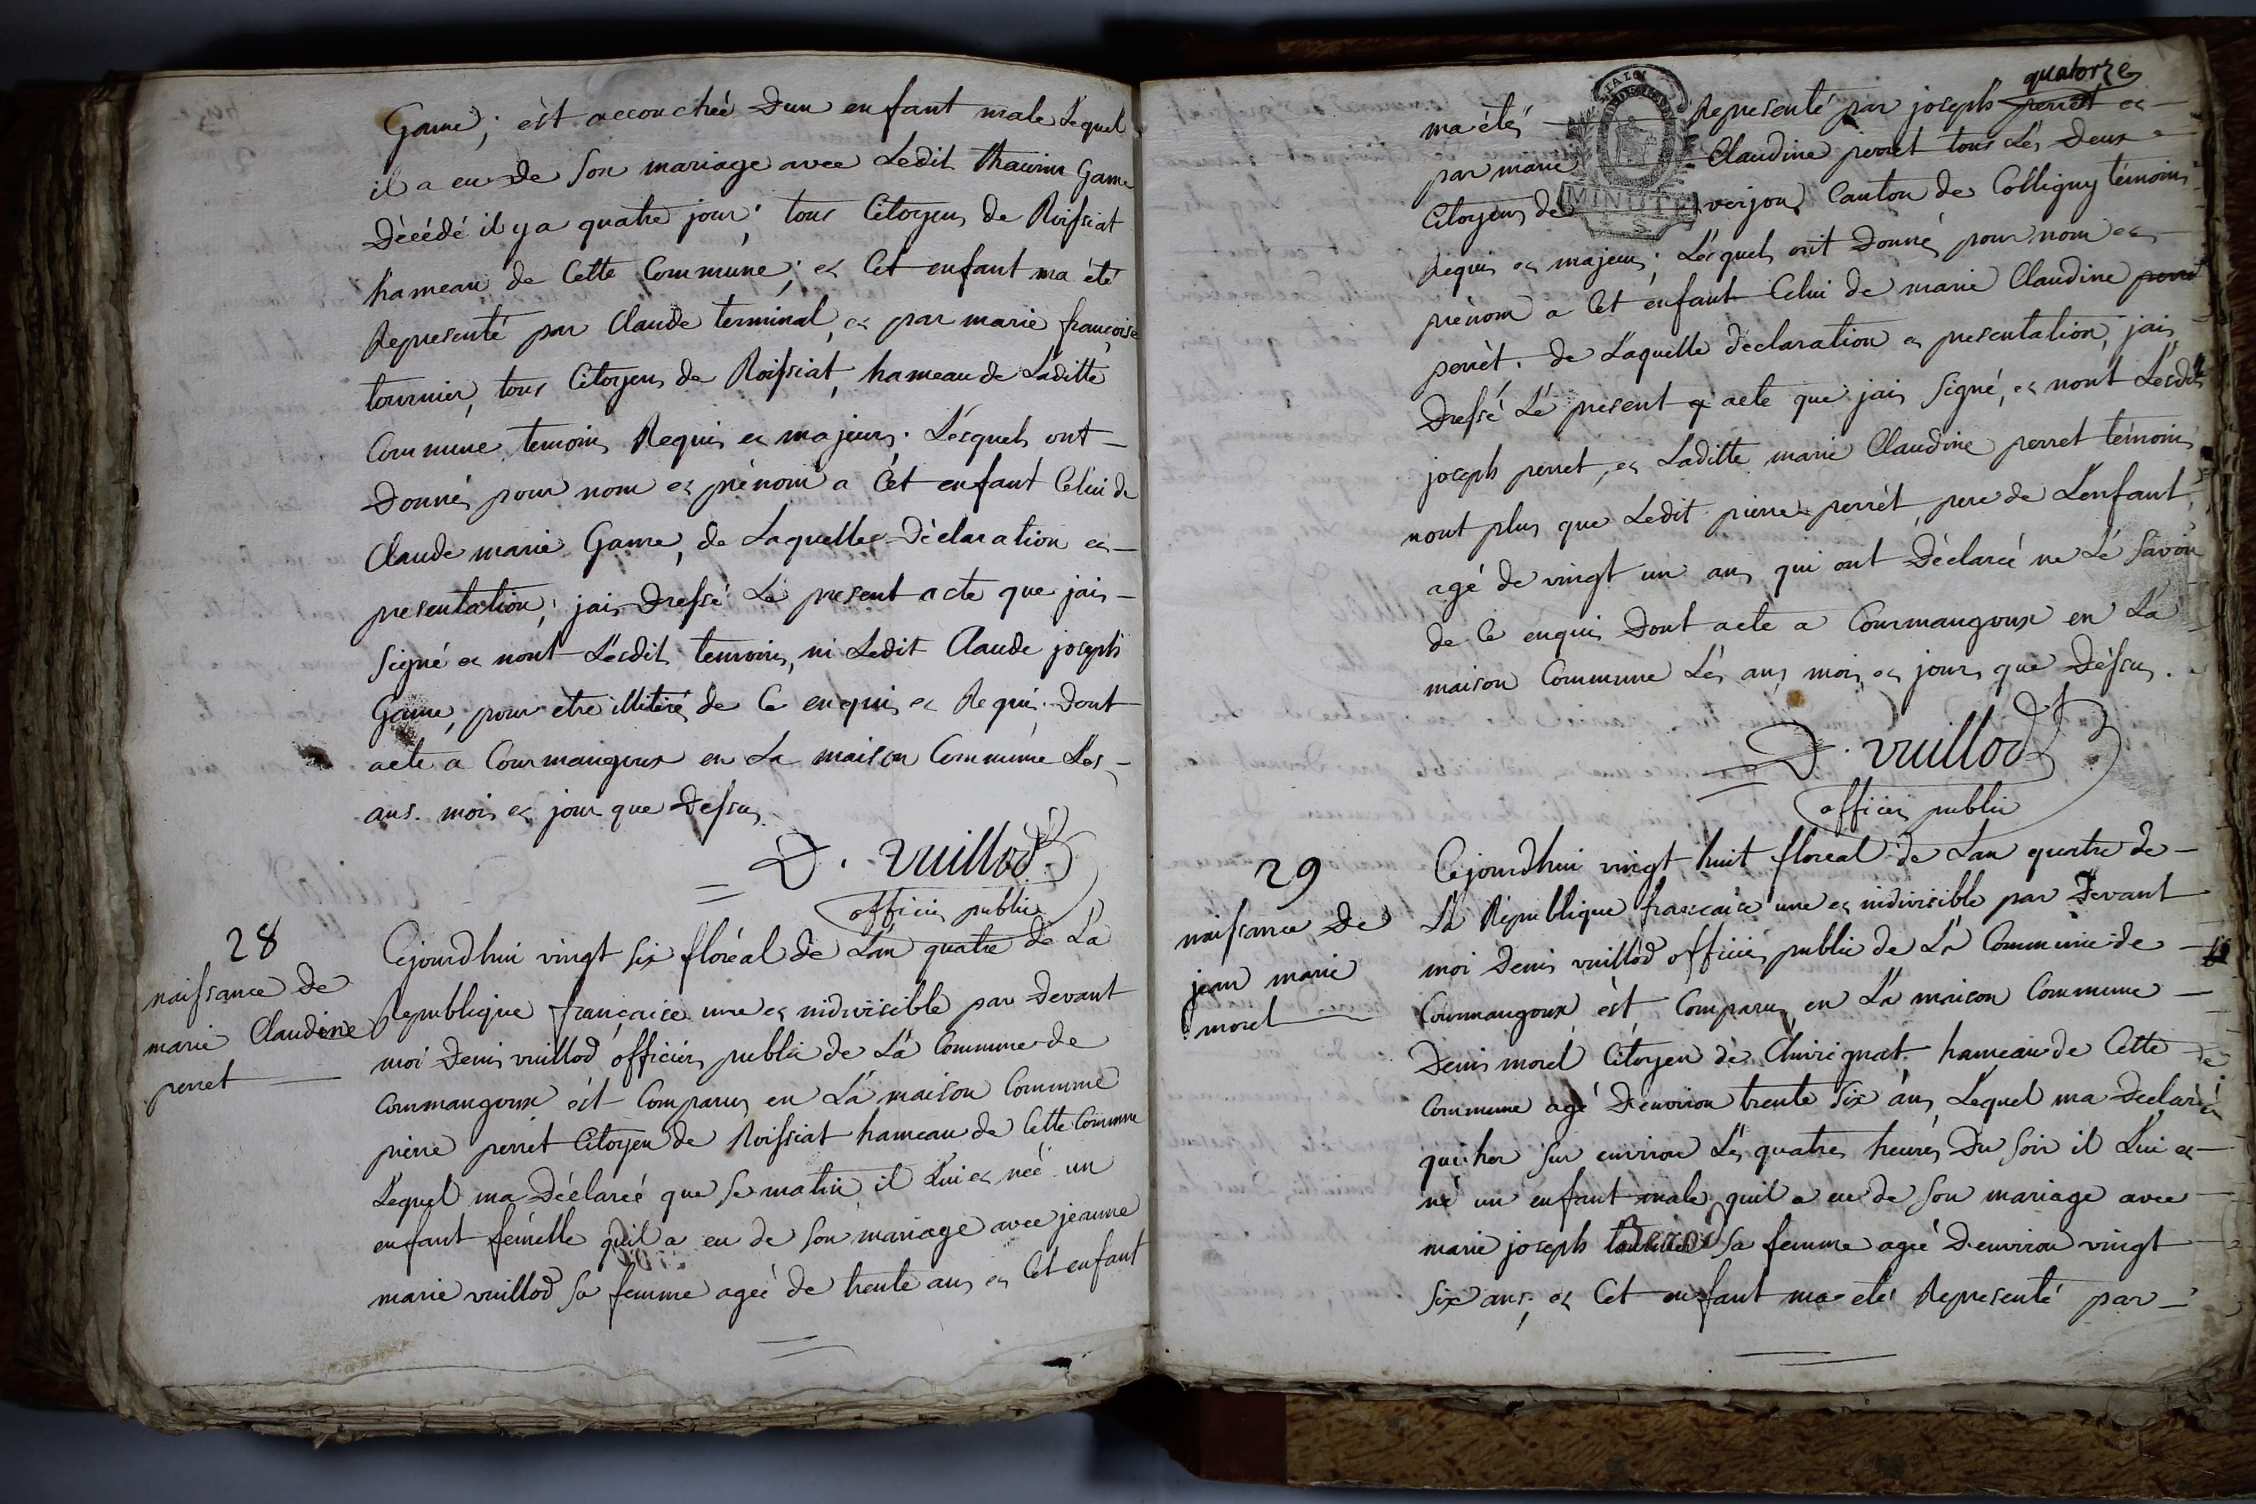 Game; èst accouchée Dun enfant male Lequel
il a eu de Son mariage avec Ledit Thaurin Game
Dècédé il y a quatre jour; tous Citoyens de Roissiat
hameau de Cette Commune; et Cet enfant ma été
Representé par Claude terminal, et par marie françoise
tournier, tous Citoyens de Roissiat, hameau de Laditte
Commune temoins Requis et majeurs. Lesquels ont
Donnés pour nom et prénom a Cèt enfant Celui de
Claude marie Game, de Laquelle Dèclaration et
presentation; jais Dressé Le present acte que jais
Signé et nont Lesdits temoins, ni Ledit Claude joseph
Game, pour etre illiterés de Ce enquis et Requis. Dont
acte a Courmangoux en La maison Commune Les
ans. mois et jour que Dessus.
D. Vuillod
officier public
28
naissance de
marie Claudine
perret
Cejourdhui vingt Six floréal de Lan quatre de La
Republique française une et indivisible par Devant
moi Denis vuillod officier public de La Commune de
Courmangoux èst Comparus en La maison Commune
pierre perret Citoyen de Roissiat hameau de Cette Commune
Lequel ma Déclareé que Se matin il Lui et neé un
enfant fémelle quil a eu de Son mariage avec jeanne
marie vuillod Sa femme ageé de trente ans et Cet enfant
quatorze
ma étés Representé par joseph perret et
par marie Claudine perret tous Lés Deux
Citoyens de verjon, Canton de Colligny témoins
MINUTE
Requis et majeurs; Lésquels ont Donnés pour nom et
prénom a Cet enfant Celui de marie Claudine perret
perrèt. de Laquelle déclaration et presentation, jais
Dressé Lé present acte que jais Signé, et nont Lesdits
joseph perret, et Laditte marie Claudine perret témoins
nont plus que Ledit pierre perrèt, pere de Lenfant,
agé de vingt un ans qui ont Déclareé ne Lé Savoir
de Ce enquis Dont acte a Courmangoux en La
maison Commune Lés ans mois et jours que Déssus.
D. vuillod
officier public
29
naissance De
jean marie
morel
Cejourdhui vingt huit floreal de Lan quatre de
La République francaise une et indivisible par Devant
moi Denis vuillod officier public de La Commune de
Courmangoux èst Comparus en La maison Commune
Denis morel Citoyen de Chivignat hameau de Cette
Commune agé Denviron trente Six ans, Lequel ma Declareé
que hier Sur environ Lés quatres heures Du Soir il Lui et
né un enfant male quil a eu de Son mariage avec
marie joseph Sa femme ageé Denviron vingt
Six ans; et Cet enfant ma etés Representé par